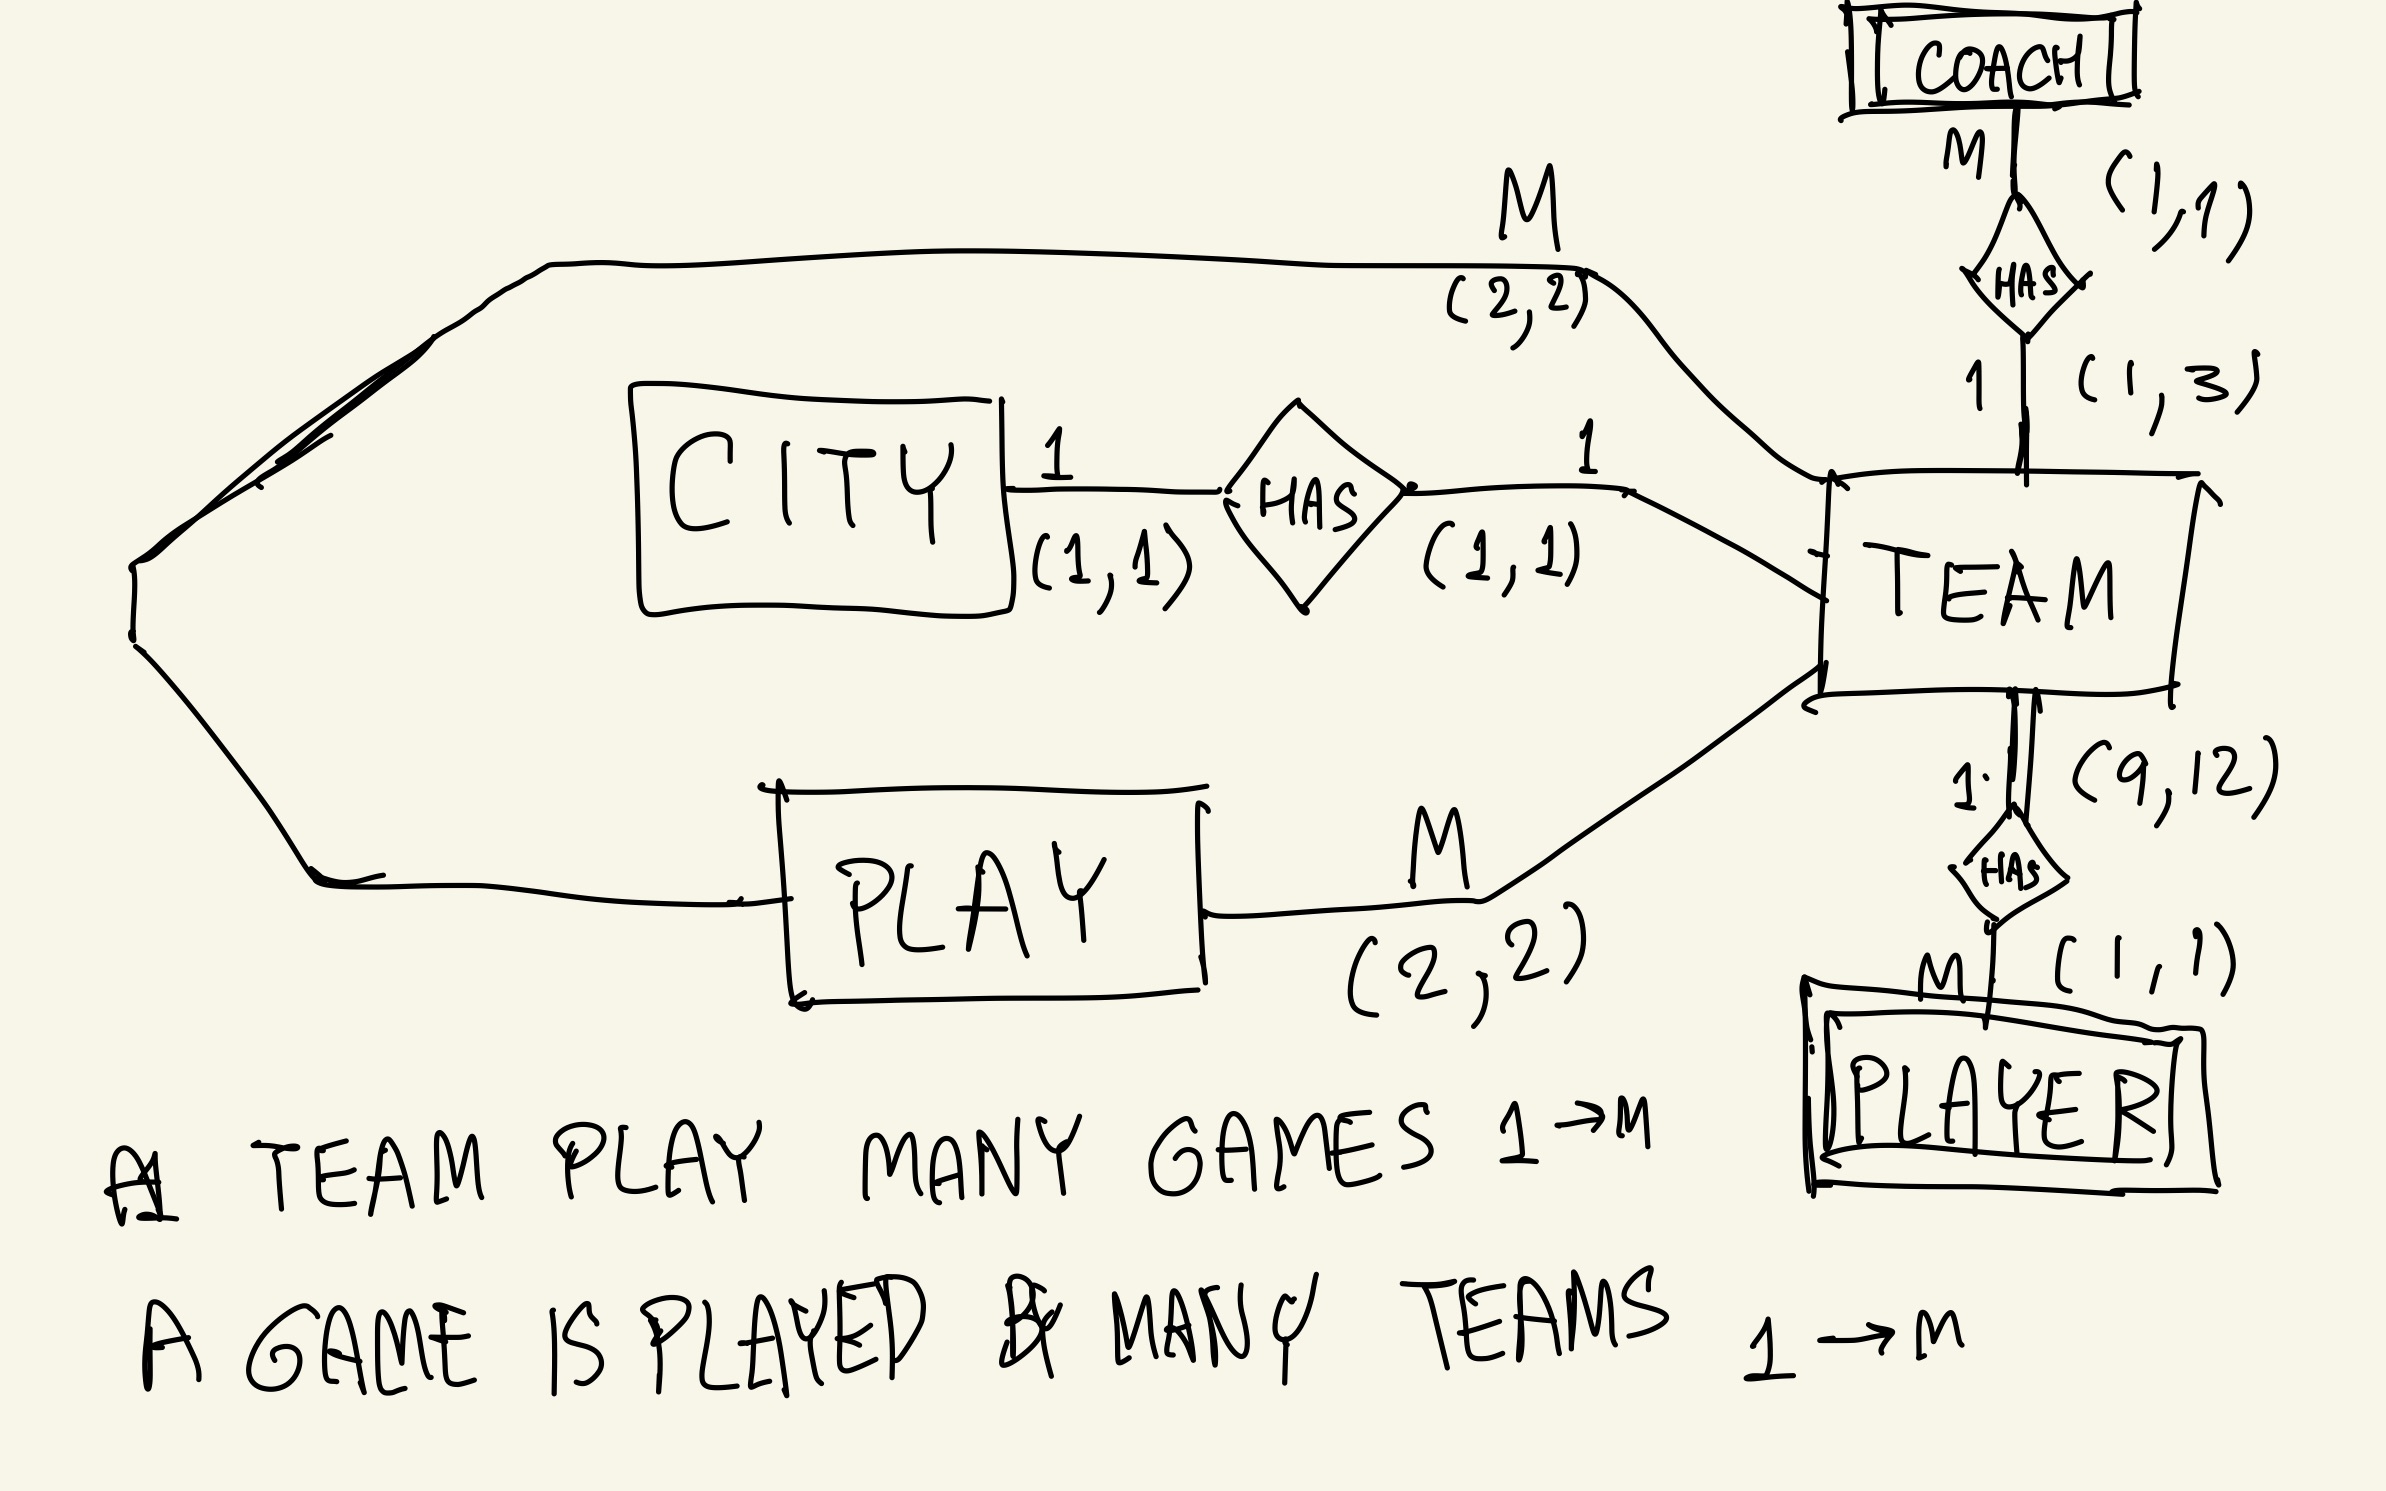 COACH
M (1,1)
HAS
1 (1,3)
M
(2,2)
CITY
1
(1,1)
HAS
1
(1,1)
TEAM
1 (9,12)
HAS
M (1,1)
PLAYER
PLAY
M
(2,2)
A TEAM PLAY MANY GAMES 1→M
A GAME IS PLAYED MANY TEAMS 1→M